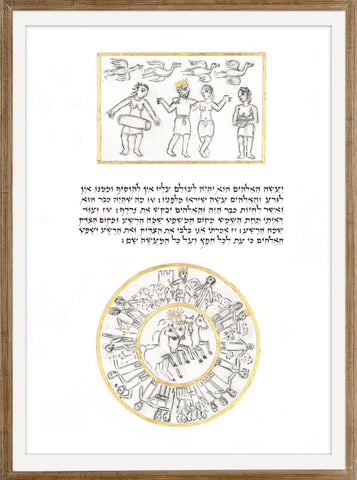 יעשה האלהים הוא יהיה לעולם עליו אין להוסיף וממנו אין
לגרע והאלהים עשה שיראו מלפניו: טו מה שהיה כבר הוא
ואשר להיות כבר היה והאלהים יבקש את נרדף: טז ועוד
ראיתי תחת השמש מקום המשפט שמה הרשע ומקום הצדק
שמה הרשע: יז אמרתי אני בלבי את הצדיק ואת הרשע ישפט
האלהים כי עת לכל חפץ ועל כל המעשה שם: